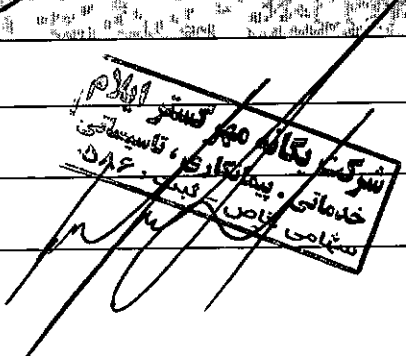 شرکت یگانه مهر گستر ایلام
خدماتی . پیمانکاری ، تاسیساتی
سهامی خاص - ثبت : ۵۸۶